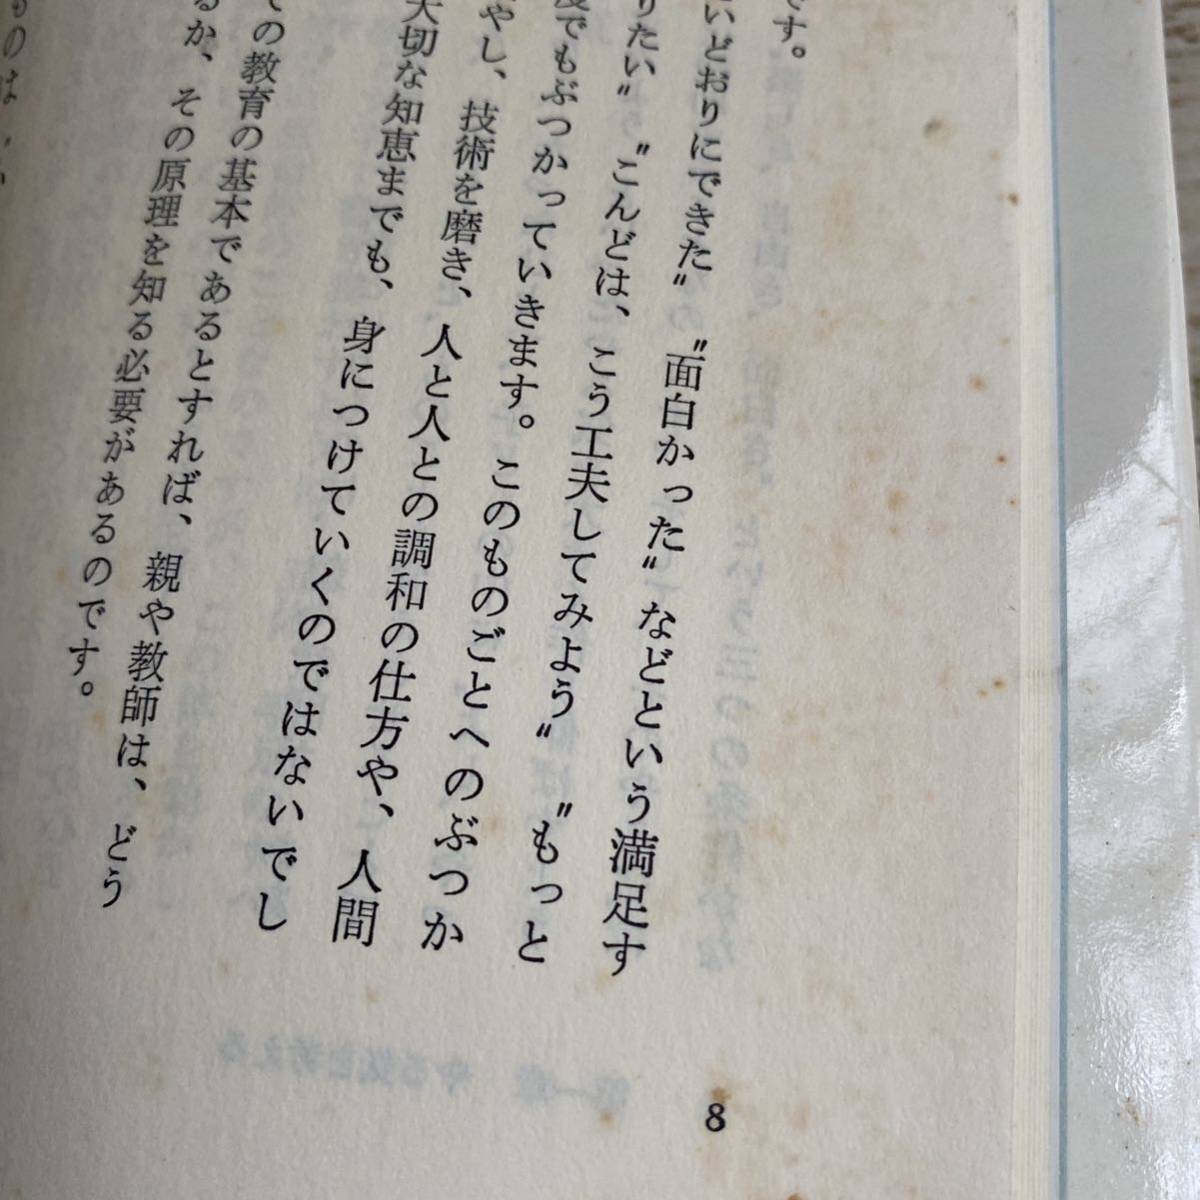 です。
いどおりにできた〟〝面白かった〟などという満足す
りたい〟〝こんどは、こう工夫してみよう〟〝もっと
度でもぶつかっていきます。このものごとへのぶつか
やし、技術を磨き、人と人との調和の仕方や、人間
大切な知恵までも、身につけていくのではないでし
ての教育の基本であるとすれば、親や教師は、どう
るか、その原理を知る必要があるのです。
ものは
8